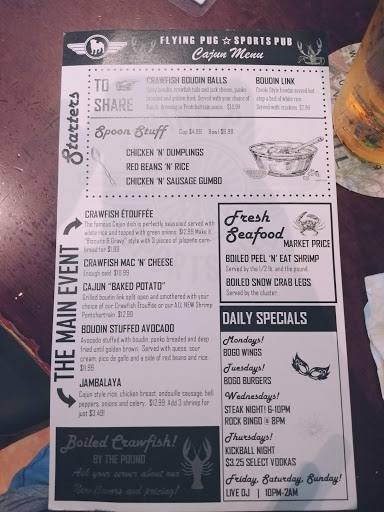 FLYING PUG ☆ SPORTS PUB
Cajun Menu
Starters
TO SHARE
CRAWFISH BOUDIN BALLS
BOUDIN LINK
Spoon Stuff Cup $4.99 Bowl $6.99
CHICKEN 'N' DUMPLINGS
RED BEANS 'N' RICE
CHICKEN 'N' SAUSAGE GUMBO
THE MAIN EVENT
CRAWFISH ÉTOUFFÉE
The famous Cajun dish is perfectly seasoned served with
white rice and topped with green onions. $12.99 Make it
"Biscuits & Gravy" style with 3 pieces of jalapeño corn-
bread for $1.99
CRAWFISH MAC 'N' CHEESE
Enough said. $10.99
CAJUN "BAKED POTATO"
Grilled boudin link split open and smothered with your
choice of our Crawfish Étouffée or our ALL NEW Shrimp
Pontchartrain. $12.99
BOUDIN STUFFED AVOCADO
Avocado stuffed with boudin, panko breaded and deep
fried until golden brown. Served with queso, sour
cream, pico de gallo and a side of red beans and rice.
$11.99
JAMBALAYA
Cajun style rice, chicken breast, andouille sausage, bell
peppers, onions and celery. $12.99 Add 3 shrimp for
just $3.49!
Boiled Crawfish!
BY THE POUND
Ask your server about our
New flavors and pricing!
Fresh
Seafood
MARKET PRICE
BOILED PEEL 'N' EAT SHRIMP
Served by the 1/2 lb. and the pound.
BOILED SNOW CRAB LEGS
Served by the cluster.
DAILY SPECIALS
Mondays!
BOGO WINGS
Tuesdays!
BOGO BURGERS
Wednesdays!
STEAK NIGHT! 6-10PM
ROCK BINGO @ 8PM
Thursdays!
KICKBALL NIGHT
$3.25 SELECT VODKAS
Friday, Saturday, Sunday!
LIVE DJ | 10PM-2AM